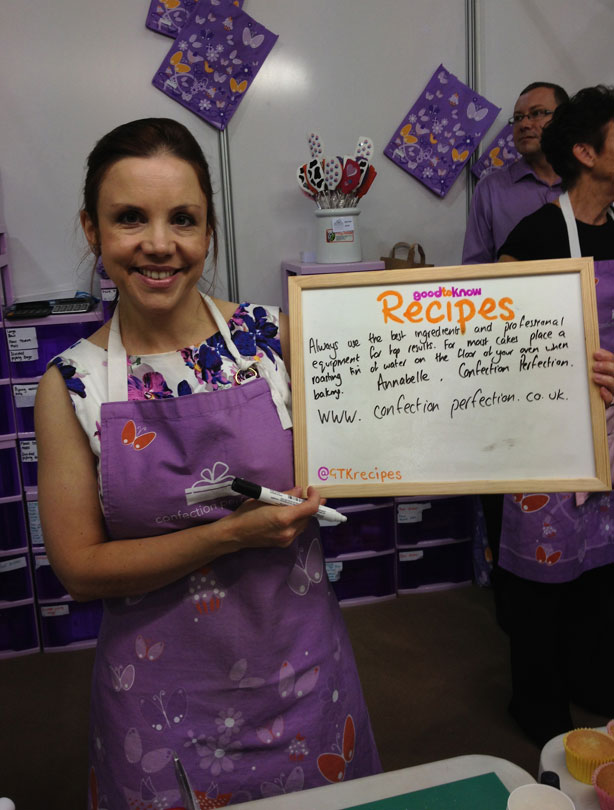 goodtoKnow
Recipes
Always use the best ingredients and professional
equipment for top results. For most cakes place a
roasting tin of water on the floor of your oven when
baking. Annabelle. Confection Perfection.
www. confection perfection.co.uk.
@GTKrecipes
confection